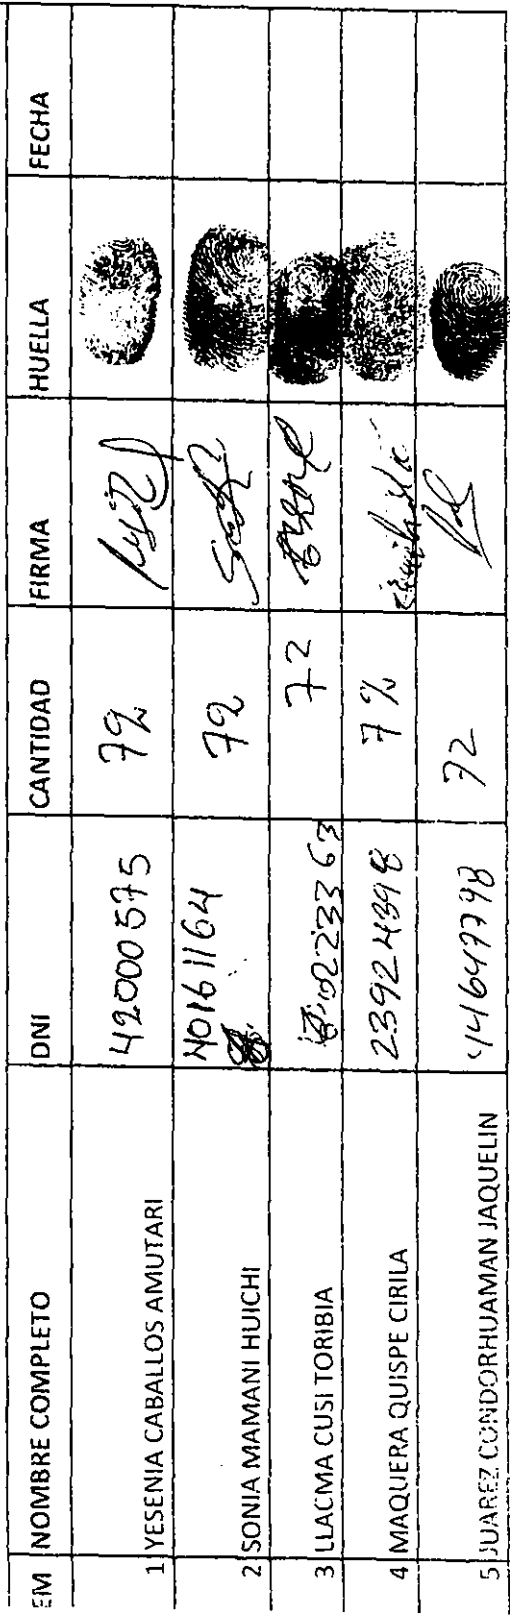 EM NOMBRE COMPLETO DNI CANTIDAD FIRMA HUELLA FECHA
1 YESENIA CABALLOS AMUTARI 42000575 72
2 SONIA MAMANI HUICHI 40161164 72
3 LLACMA CUSI TORIBIA 02233363 72
4 MAQUERA QUISPE CIRILA 23924398 72
5 JUAREZ CONDORHUAMAN JAQUELIN 44647798 72